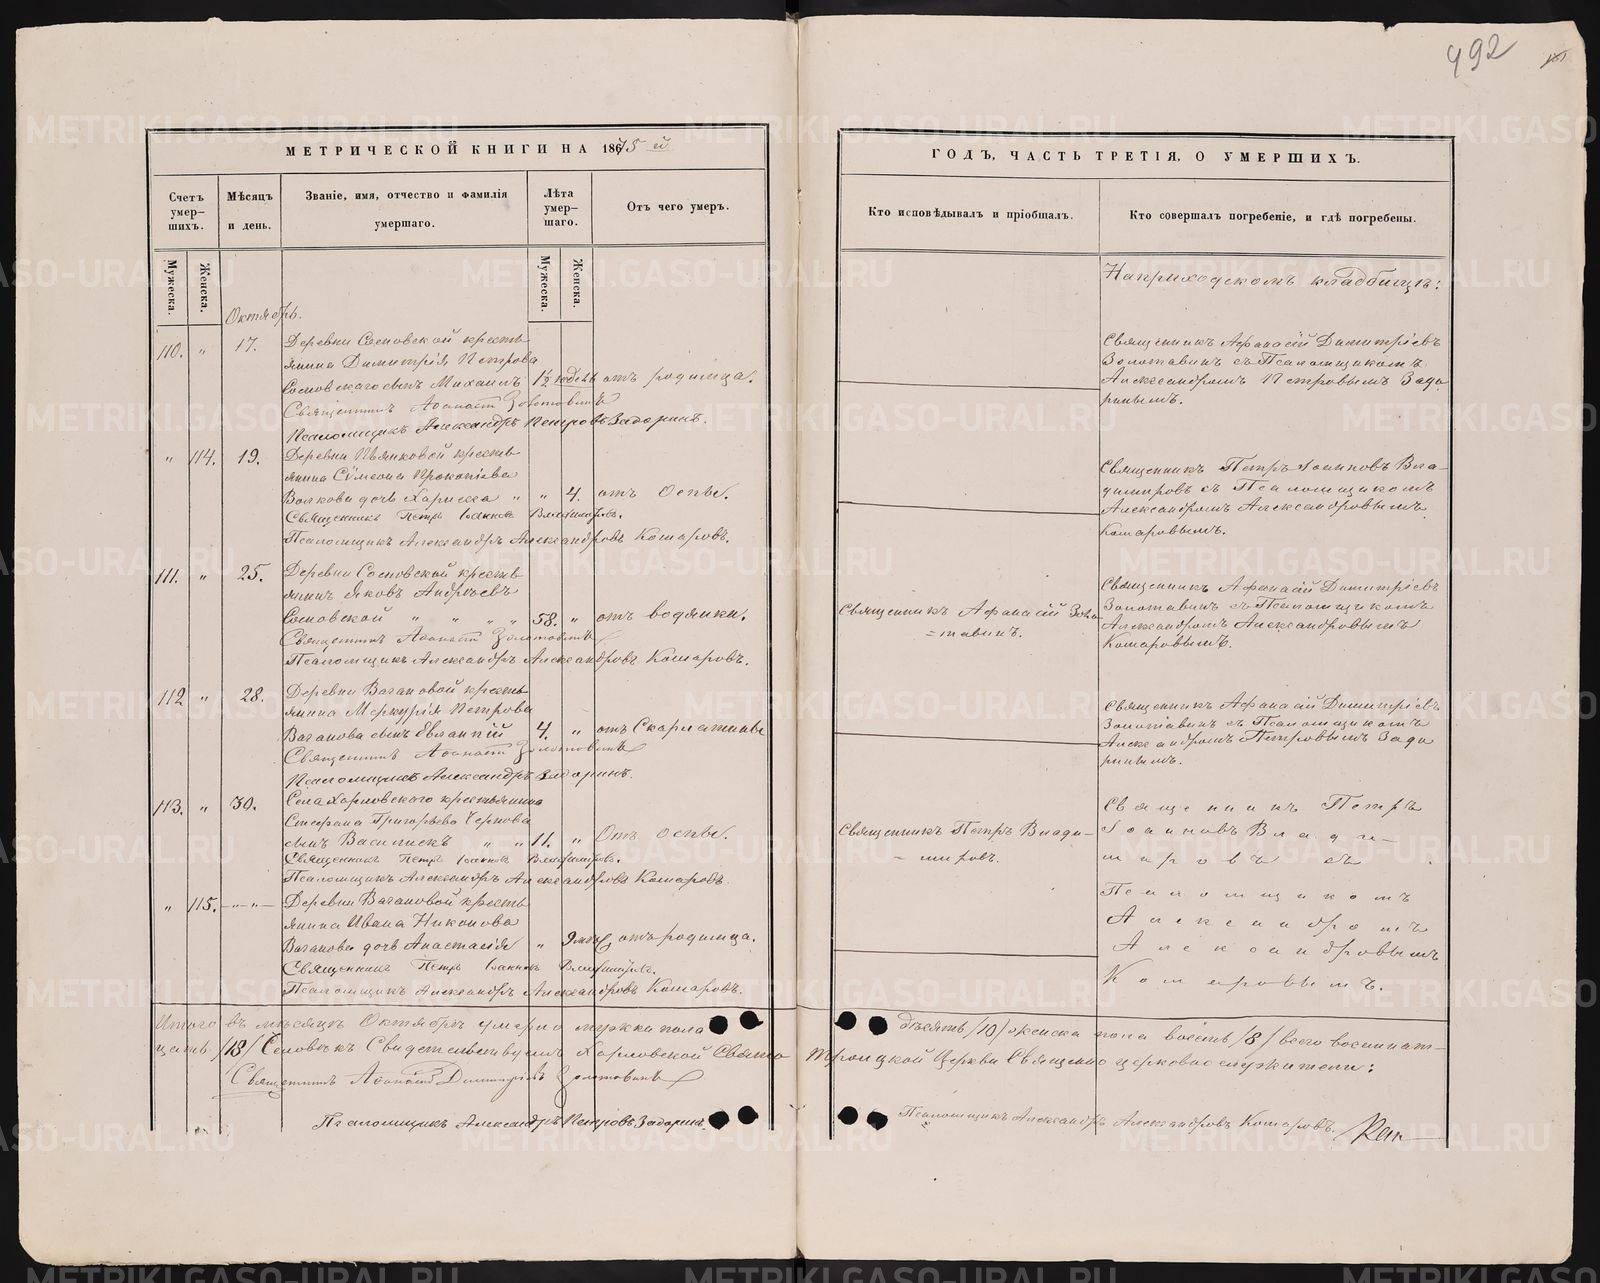 492
МЕТРИЧЕСКОЙ КНИГИ НА 1875 й
ГОДЪ, ЧАСТЬ ТРЕТІЯ, О УМЕРШИХЪ.
Счетъ умер-шихъ.
Мѣсяцъ и день.
Званіе, имя, отчество и фамилія умершаго.
Лѣта умер-шаго.
Отъ чего умеръ.
Кто исповѣдывалъ и пріобщалъ.
Кто совершалъ погребеніе, и гдѣ погребены.
Мужеска.
Женска.
Мужеска.
Женска.
Октябрь.
На приходскомъ кладбищѣ:
110. " 17. Деревни Сосновской кресть
янина Димитрія Петрова
Сосновскаго сынъ Михаилъ 1½ недель отъ родимца.
Священникъ Аѳанасій Золотавинъ
Псаломщикъ Александръ Петровъ Задоринъ.
Священникъ Афанасій Димитріевъ
Золотавинъ съ Псаломщикомъ
Александромъ Петровымъ Задо
ринымъ.
" 114. 19. Деревни Пьянковой кресть
янина Сѵмеона Прокопіева
Волкова дочь Харисса " " 4. отъ Оспы.
Священникъ Петръ Іоанновъ Владиміровъ.
Псаломщикъ Александръ Александровъ Комаровъ.
Священникъ Петръ Іоанновъ Вла-
диміровъ съ Псаломщикомъ
Александромъ Александровымъ
Комаровымъ.
111. " 25. Деревни Сосновской кресть
янинъ Яковъ Андреевъ
Сосновской " " " " 58. " отъ водянки.
Священникъ Аѳанасій Золотавинъ
Псаломщикъ Александръ Александровъ Комаровъ.
Священникъ Афанасій Золо
=тавинъ.
Священникъ Афанасій Димитріевъ
Золотавинъ съ Псаломщикомъ
Александромъ Александровымъ
Комаровымъ.
112 " 28. Деревни Вагановой кресть
янина Меркурія Петрова
Ваганова сынъ Евлампій 4. " отъ Скарлатины
Священникъ Аѳанасій Золотавинъ
Псаломщикъ Александръ Задоринъ.
Священникъ Афанасій Димитріевъ
Золотавинъ съ Псаломщикомъ
Александромъ Петровымъ Задо
ринымъ.
113. " 30. Села Харловскаго крестьянина
Стефана Григорьева Чернова
сынъ Василискъ " " 11. " Отъ оспы.
Священникъ Петръ Іоанновъ Владиміровъ.
Псаломщикъ Александръ Александровъ Комаровъ.
Священникъ Петръ Влади-
=міровъ.
Священникъ Петръ
Іоанновъ Влади-
міровъ съ
Псаломщикомъ
Александромъ
Александровымъ
Комаровымъ.
" 115. —"— Деревни Вагановой кресть
янина Ивана Никонова
Ваганова дочь Анастасія " 9 мѣс. отъ родимца.
Священникъ Петръ Іоанновъ Владиміровъ.
Псаломщикъ Александръ Александровъ Комаровъ.
Итого въ мѣсяцѣ Октябрѣ умерло мужска пола десять /10/ женска пола восемь /8/ всего восемнат-
цать /18/ Человѣкъ Свидетельствуемъ Харловской Свято Троицкой Церкви Священно церковнослужители:
Священникъ Аѳанасій Димитріевъ Золотавинъ
Псаломщикъ Александръ Петровъ Задоринъ.
Псаломщикъ Александръ Александровъ Комаровъ.